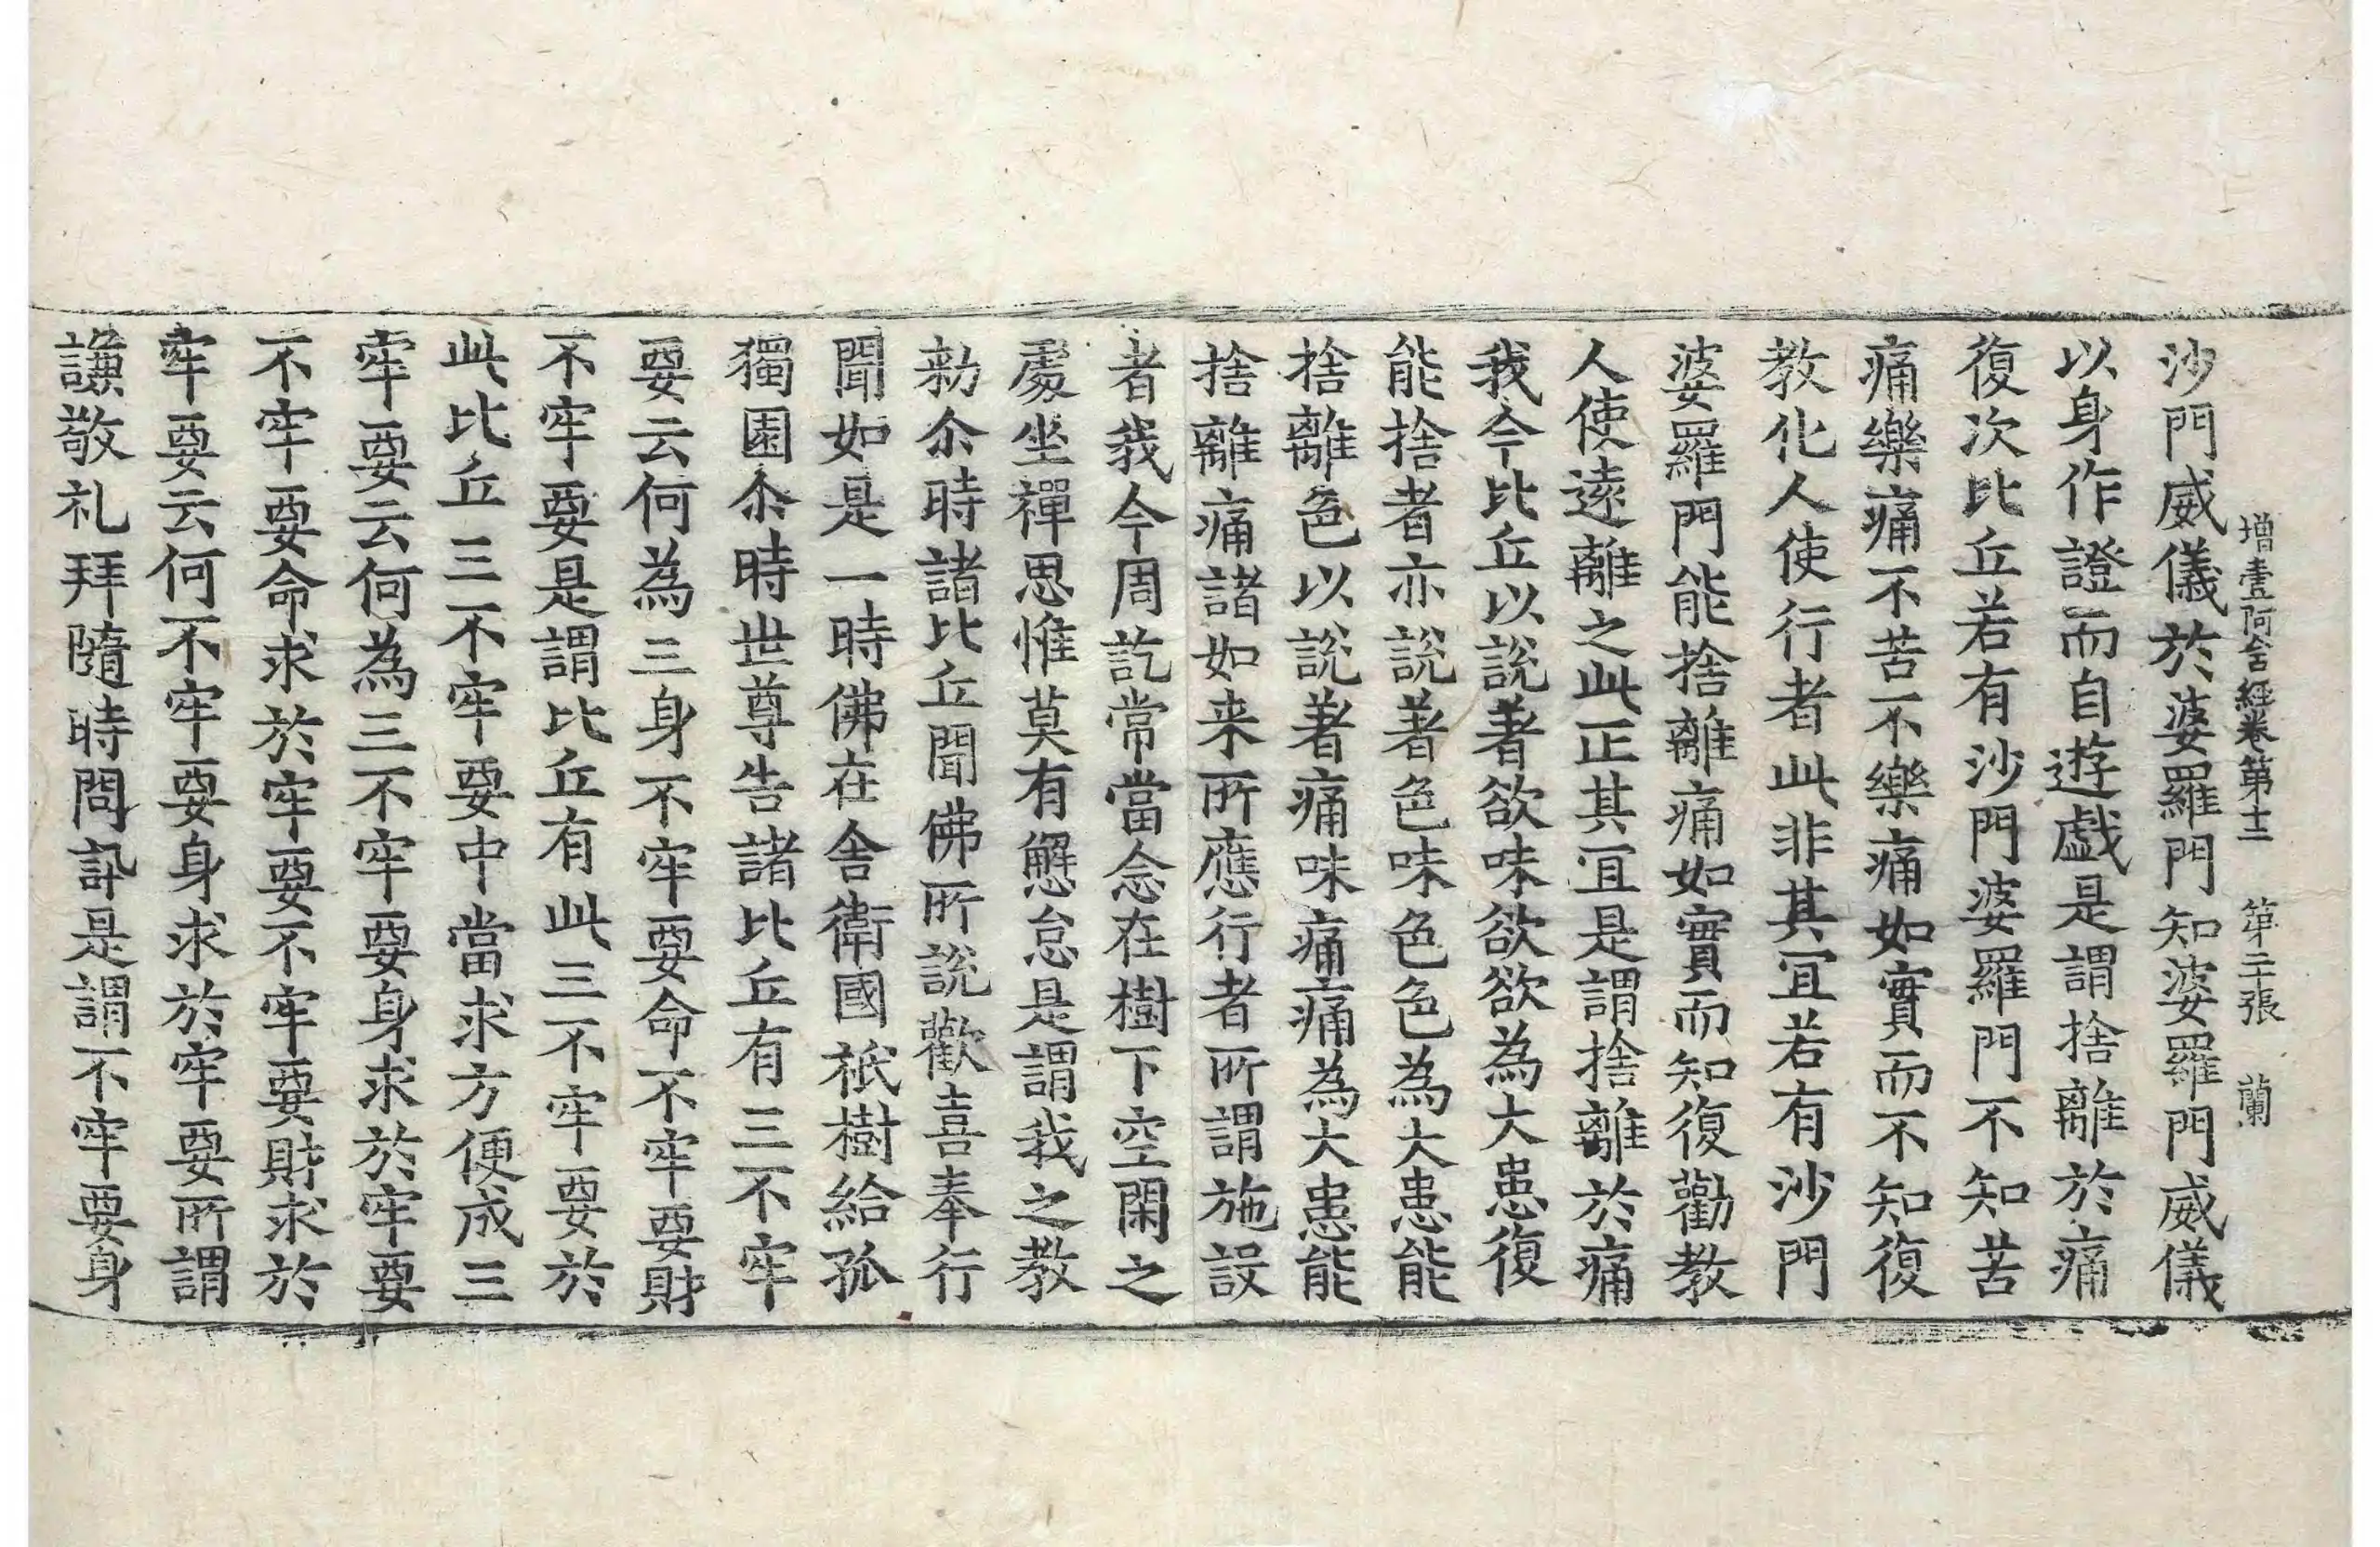 增壹阿含經卷第十二 第二十張 蘭
沙門威儀於婆羅門知婆羅門威儀
以身作證而自遊戱是謂捨離於痛
復次比丘若有沙門婆羅門不知苦
痛樂痛不苦不樂痛如實而不知復
教化人使行者此非其冝若有沙門
婆羅門能捨離痛如實而知復勸教
人使遠離之此正其冝是謂捨離於痛
我今比丘以說著欲味欲欲為大患復
能捨者亦說著色味色色為大患能
捨離色以說著痛味痛痛為大患能
捨離痛諸如来所應行者所謂施設
者我今周訖常當念在樹下空閑之
處坐禪思惟莫有懈怠是謂我之教
勑尒時諸比丘聞佛所說歡喜奉行
聞如是一時佛在舍衛國祇樹給孤
獨園尒時世尊告諸比丘有三不牢
要云何為三身不牢要命不牢要財
不牢要是謂比丘有此三不牢要於
此比丘三不牢要中當求方便成三
牢要云何為三不牢要身求於牢要
不牢要命求於牢要不牢要財求於
牢要云何不牢要身求於牢要所謂
謙敬礼拜隨時問訊是謂不牢要身